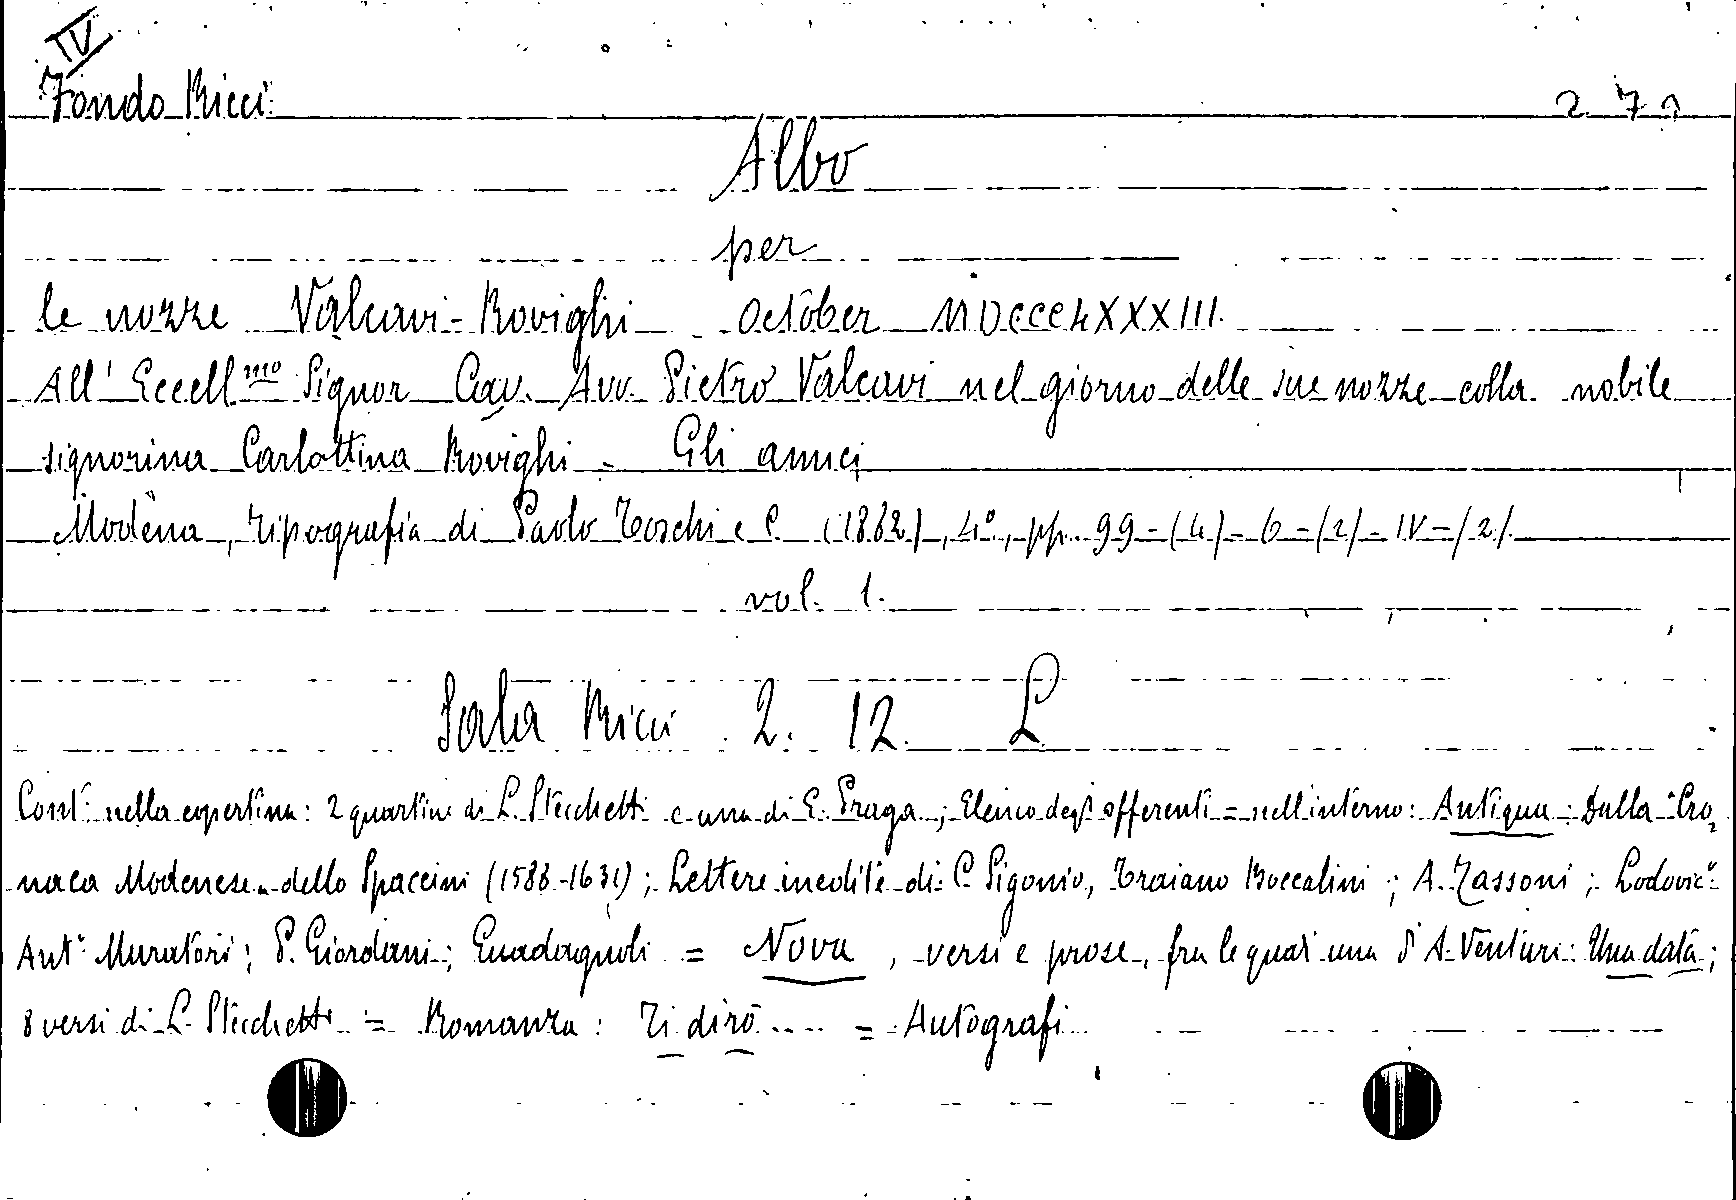 IV
Fondo Ricci
Albo
per
le nozze Valcavi-Rovighi October MDCCCLXXXIII.
All' Eccell.mo Signor Cav. Avv. Pietro Valcavi nel giorno delle sue nozze colla nobile
signorina Carlottina Rovighi - Gli amici
Modena, Tipografia di Paolo Toschi e C. (1882), 4°, pp. 99-(4)-6-(2)-IV-(2).
vol. 1.
Sala Ricci 2. 12. L
Cont: nella copertina: 2 quartine di L. Stecchetti e una di E. Praga; Elenco degl' offerenti = nell'interno: Antiqua: Dalla "Cro,
naca Modenese" dello Spaccini (1588-1631); Lettere inedite di: C. Sigonio, Traiano Boccalini; A. Tassoni; Lodovic°
Ant° Muratori; P. Giordani; Guadagnoli = Nova, versi e prose, fra le quali una d' A. Venturi: Una data;
8 versi di L. Stecchetti = Romanza: Ti dirò.... = Autografi